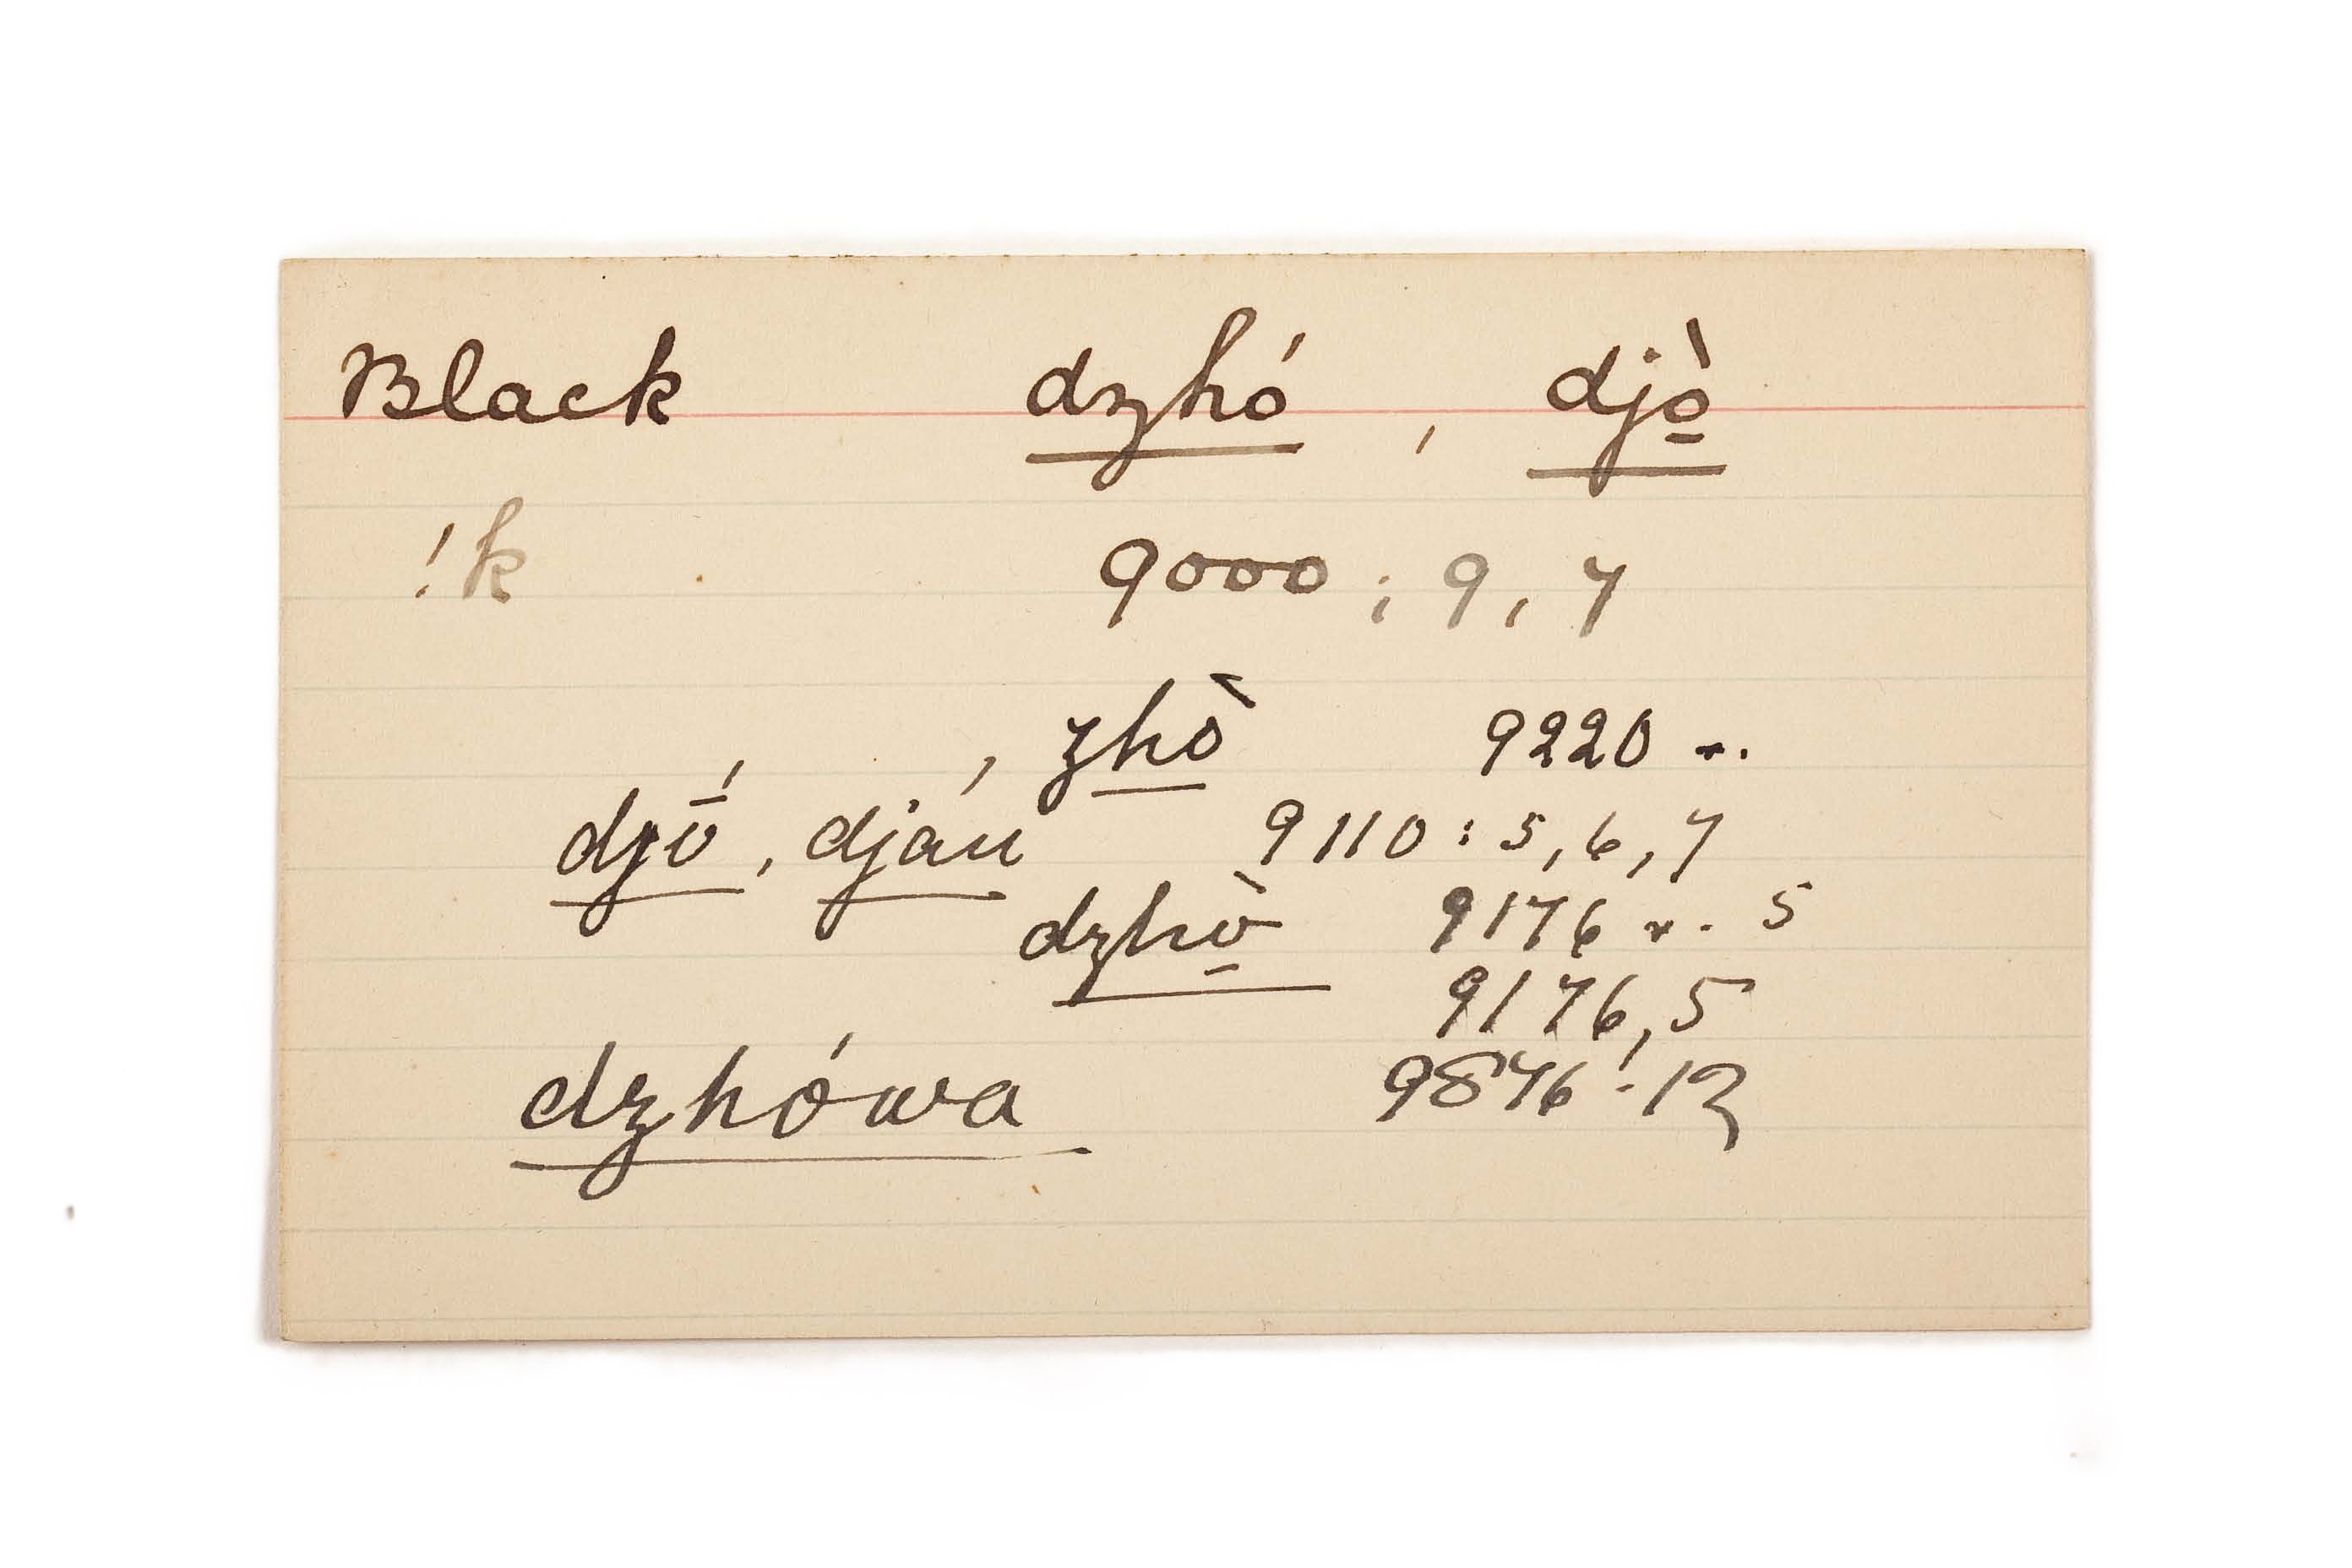 Black dzhó, djò̠
!k 9000; 9, 7
zhò 9220 v.
djṓ, dján 9110: 5, 6, 7
dzhò̠ 9176 v. 5
9176, 5
dzhówa 9876:12